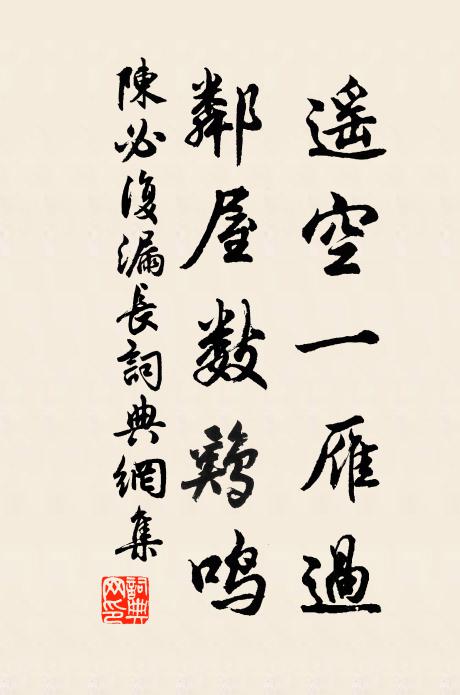 遥空一雁過
鄰屋数鷄鳴
陳必復漏長詞典網集
詞典
网印